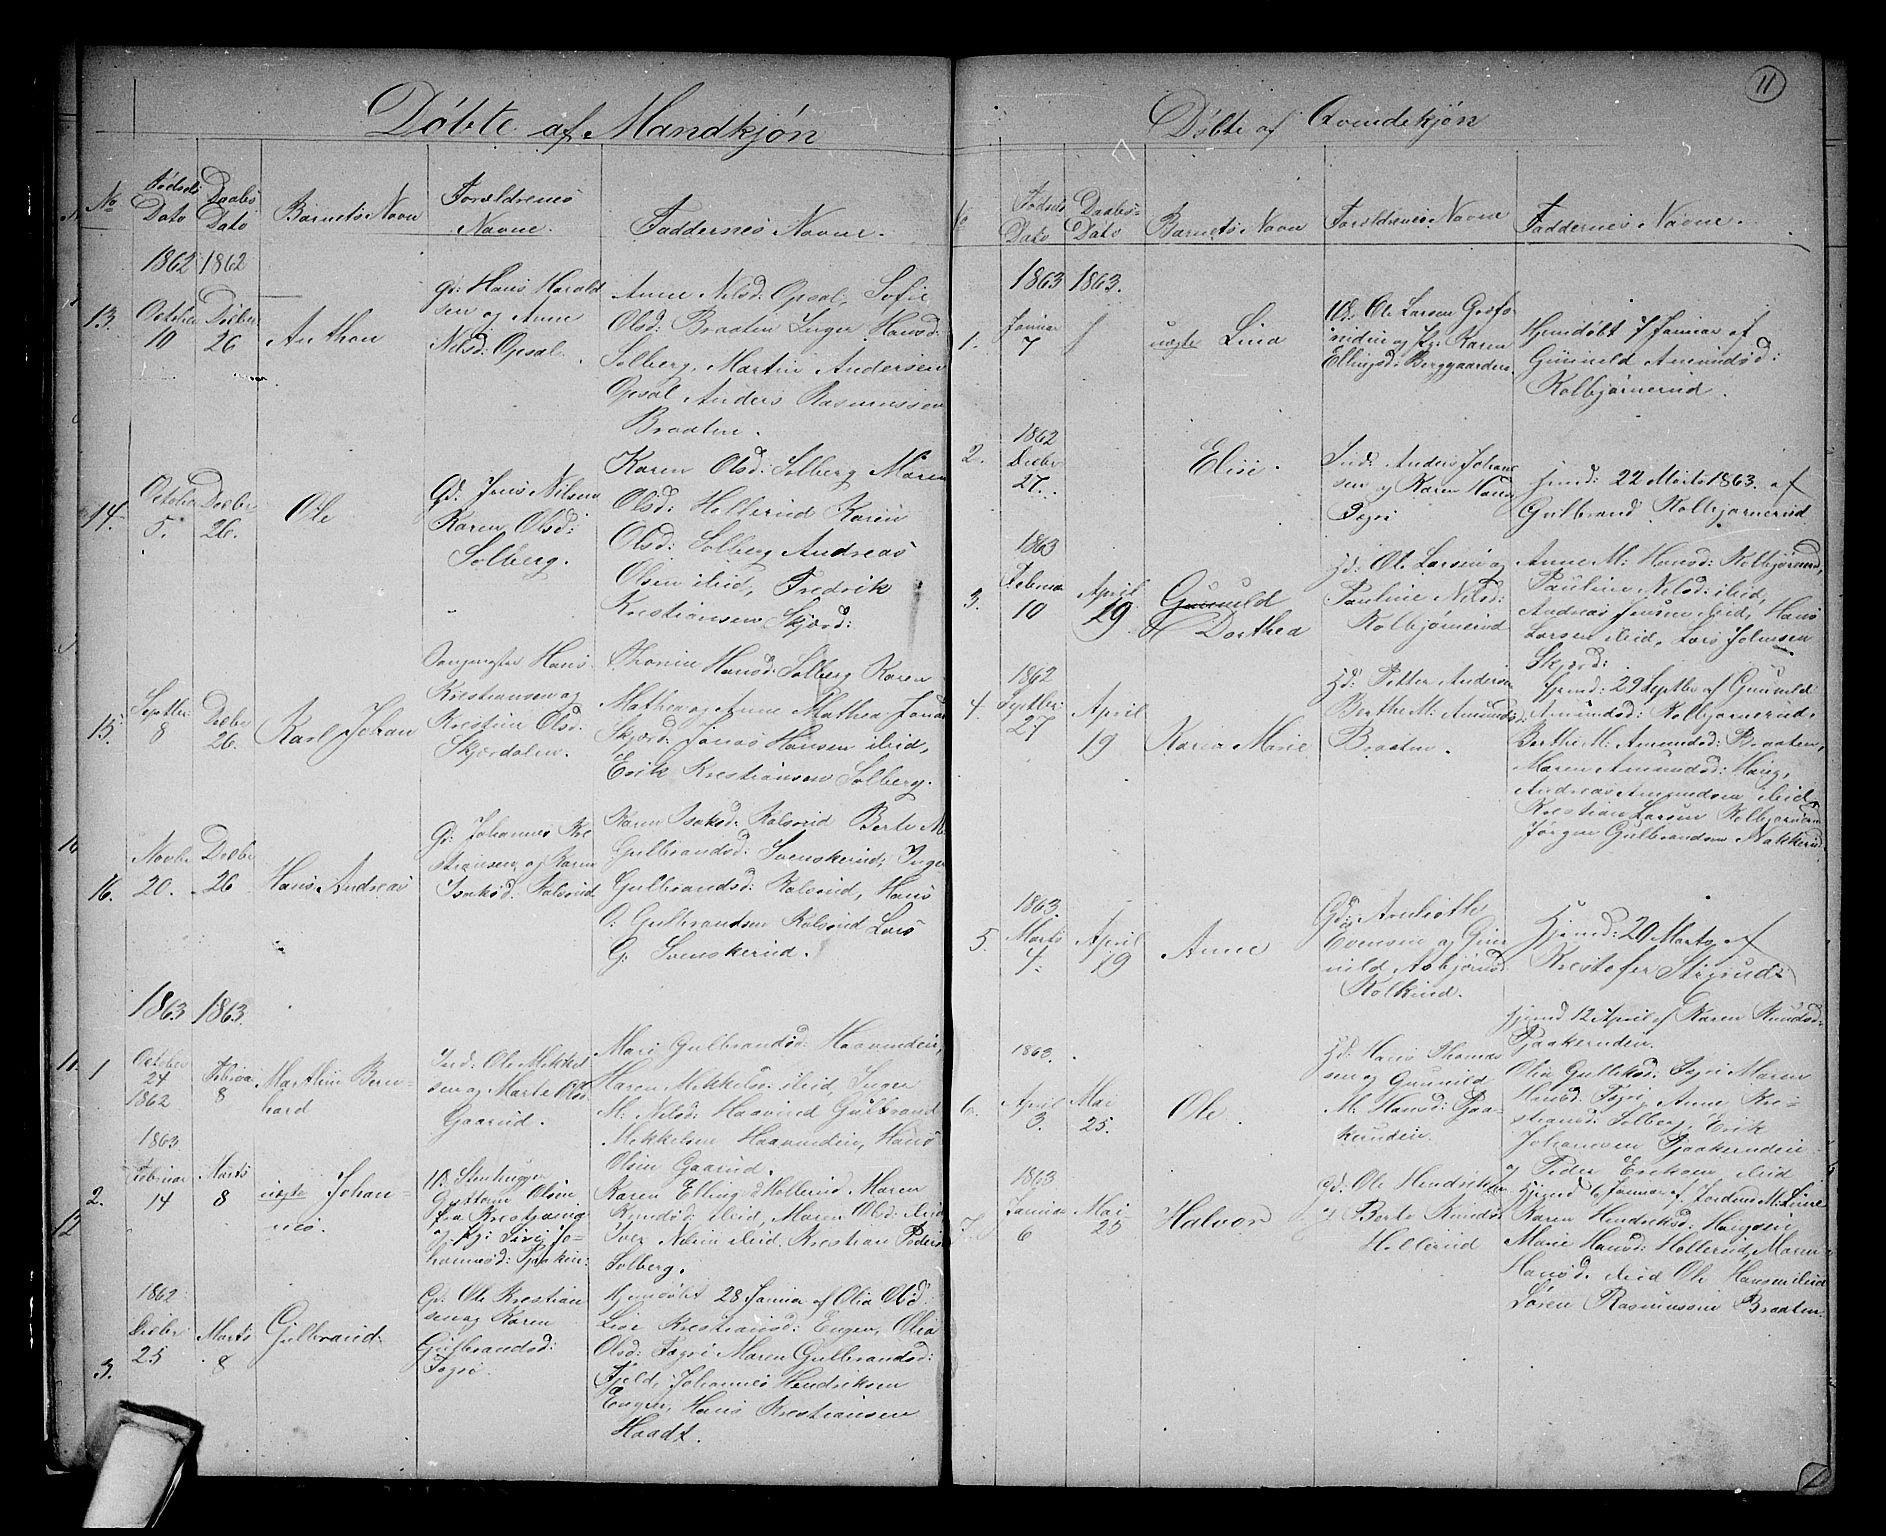 Døbte af Mandkjøn
No
Fødsels Dato
Daabs Dato
Barnets Navn
Forældrenes Navne.
Faddernes Navne.
1862 1862
13.
October 10
Decbr 26
Anthon
Gr: Hans Harald
sen og Anne
Nilsd: Opsal.
Anne Nilsd: Opsal, Sofie
Olsd: Braaten Inger Hansd:
Solberg, Martin Andersen
Opsal Anders Rasmussen
Braaten.
14.
October 5.
Decbr 26.
Ole
Gd: Jens Nilsen
Karen Olsd:
Solberg.
Karen Olsd: Solberg Maren
Olsd: Hollerud Karen
Olsd: Solberg Andreas
Olsen ibid, Fredrik
Kristiansen Skjærd:
15.
Septbr 8
Decbr 26.
Karl Johan
Hans
Kristiansen og
Kristine Olsd:
Skjærdalen.
Thonine Hansd: Solberg Karen
Mathea og Anne Mathea Jonasd
Skjærd: Jonas Hansen ibid,
Erik Kristiansen Solberg.
16.
Novbr 20.
Decbr 26
Hans Andreas
Gr: Johannes Kri
stiansen og Karen
Isaksd. Kalsrud
Karen Isaksd: Kalsrud Berte M.
Gulbrandsd: Svenskerud, Inger
Gulbrandsd: Kalsrud, Hans
O. Gulbrandsen Kalsrud Lars
G. Svenskerud.
1863 1863.
1
October 24 1862
Februar 8
Marthin Bern-
hard
Ind: Ole Mikkel
sen og Marte Olsd
Gaarud.
Mari Gulbrandsd: Haavenden,
Maren Mikkelsd: ibid, Inger
M. Nilsd: Haavend Gulbrand
Mikkelsen Haavenden, Hans
Olsen Gaarud.
2.
1863
Februar 14
Marts 8
uægte Johan-
nes.
Uf: Stenhugger
Guttorm Olsen
fra Kristiania
og Pg: Siri Jo-
hannesd:
Karen Ellingsd Hollerud Maren
Knudsd: ibid, Maren Olsd: ibid
Iver ibid. Kristian Peders
Solberg.
3.
1862
Decbr 25
Marts 8
Gulbrand
Gr: Ole Kristian
sen og Karen
Gulbrandsd:
Fagri
Hjemdøbt 28 Januar af Olia Olsd:
Lise Kristiansd: Engen, Olia
Olsd: Fagri Maren Gulbrandsd:
Fjeld, Johannes Hendriksen
Engen, Hans Kristiansen
Haadt.
11
Døbte af Qvindekjøn
No
Fødsels Dato
Daabs- Dato
Barnets Navn
Forældrenes Navne
Faddernes Navne.
1863 1863.
1.
Januar 7
uægte Lina
Uf: Ole Larsen Grøfs
niden og Pg: Karen
Ellingsd: Berggaarden
Hjemdøbt 7 Januar af
Gunild Amundsd:
Kolbjørnerud.
2.
1862
Decbr 27.
Elise.
Ind: Anders Johan
sen og Karen Hansd
Fagri
Hjemd: 22 Marts 1863. af
Gulbrand Kolbjørnerud
3.
1863
Februar 10
April 19
Gunild
Dorthea
Hd: Ole Larsen og
Pauline Nilsd:
Kolbjørnerud
Anne M: Hansd: Kolbjørnrud,
Pauline Nilsd: ibid,
Andreas Jensen ibid, Hans
Larsen ibid, Lars Johnsen
Skjærd:
4.
1862
Septbr: 27
April 19
Karen Marie
Hd: Petter Andersen
Berthe M: Amundsd:
Braaten.
Hjemd: 29 Septbr af Gunild
Amundsd: Kolbjørnerud,
Berthe M: Amundsd: Braaten,
Maren Amundsd: Haug,
Andreas Amundsen ibid,
Kristian Larsen Kolbjørnerud
Jørgen Gulbrandsen Nakkerud.
5.
1863.
Marts 4.
April 19
Anne
Gd: Arnhoth
Evensen og Gun
nild Asbjørnsd:
Kolkind.
Hjemd: 20 Marts af
Kristofer Stixrud:
6.
1863.
April 3.
Mai 25.
Ole.
Hd: Hans Thomas
sen og Gunnild
M: Hansd: Pjaa-
kerenden.
Hjemd 12 April af Karen Knudsd:
Pjaakerenden.
Olia Gulliksd. Fagri Maren
Hansd: Fagri, Anne Kri-
stiansd: Solberg, Erik
Johannesen Pjaakerenden
og Peder Eriksen ibid
7.
1863
Januar 6
Mai 25
Halvor
Gd. Ole Hendriksen
og Berte Knudsd:
Hollerud
Hjemd 6 Januar af Jordem.
Karen Hendriksd: Haugen
Marie Hansd: Hollerud, Maren
Hansd. ibid Ole Hansen ibid
Søren Rasmussen Braaten.